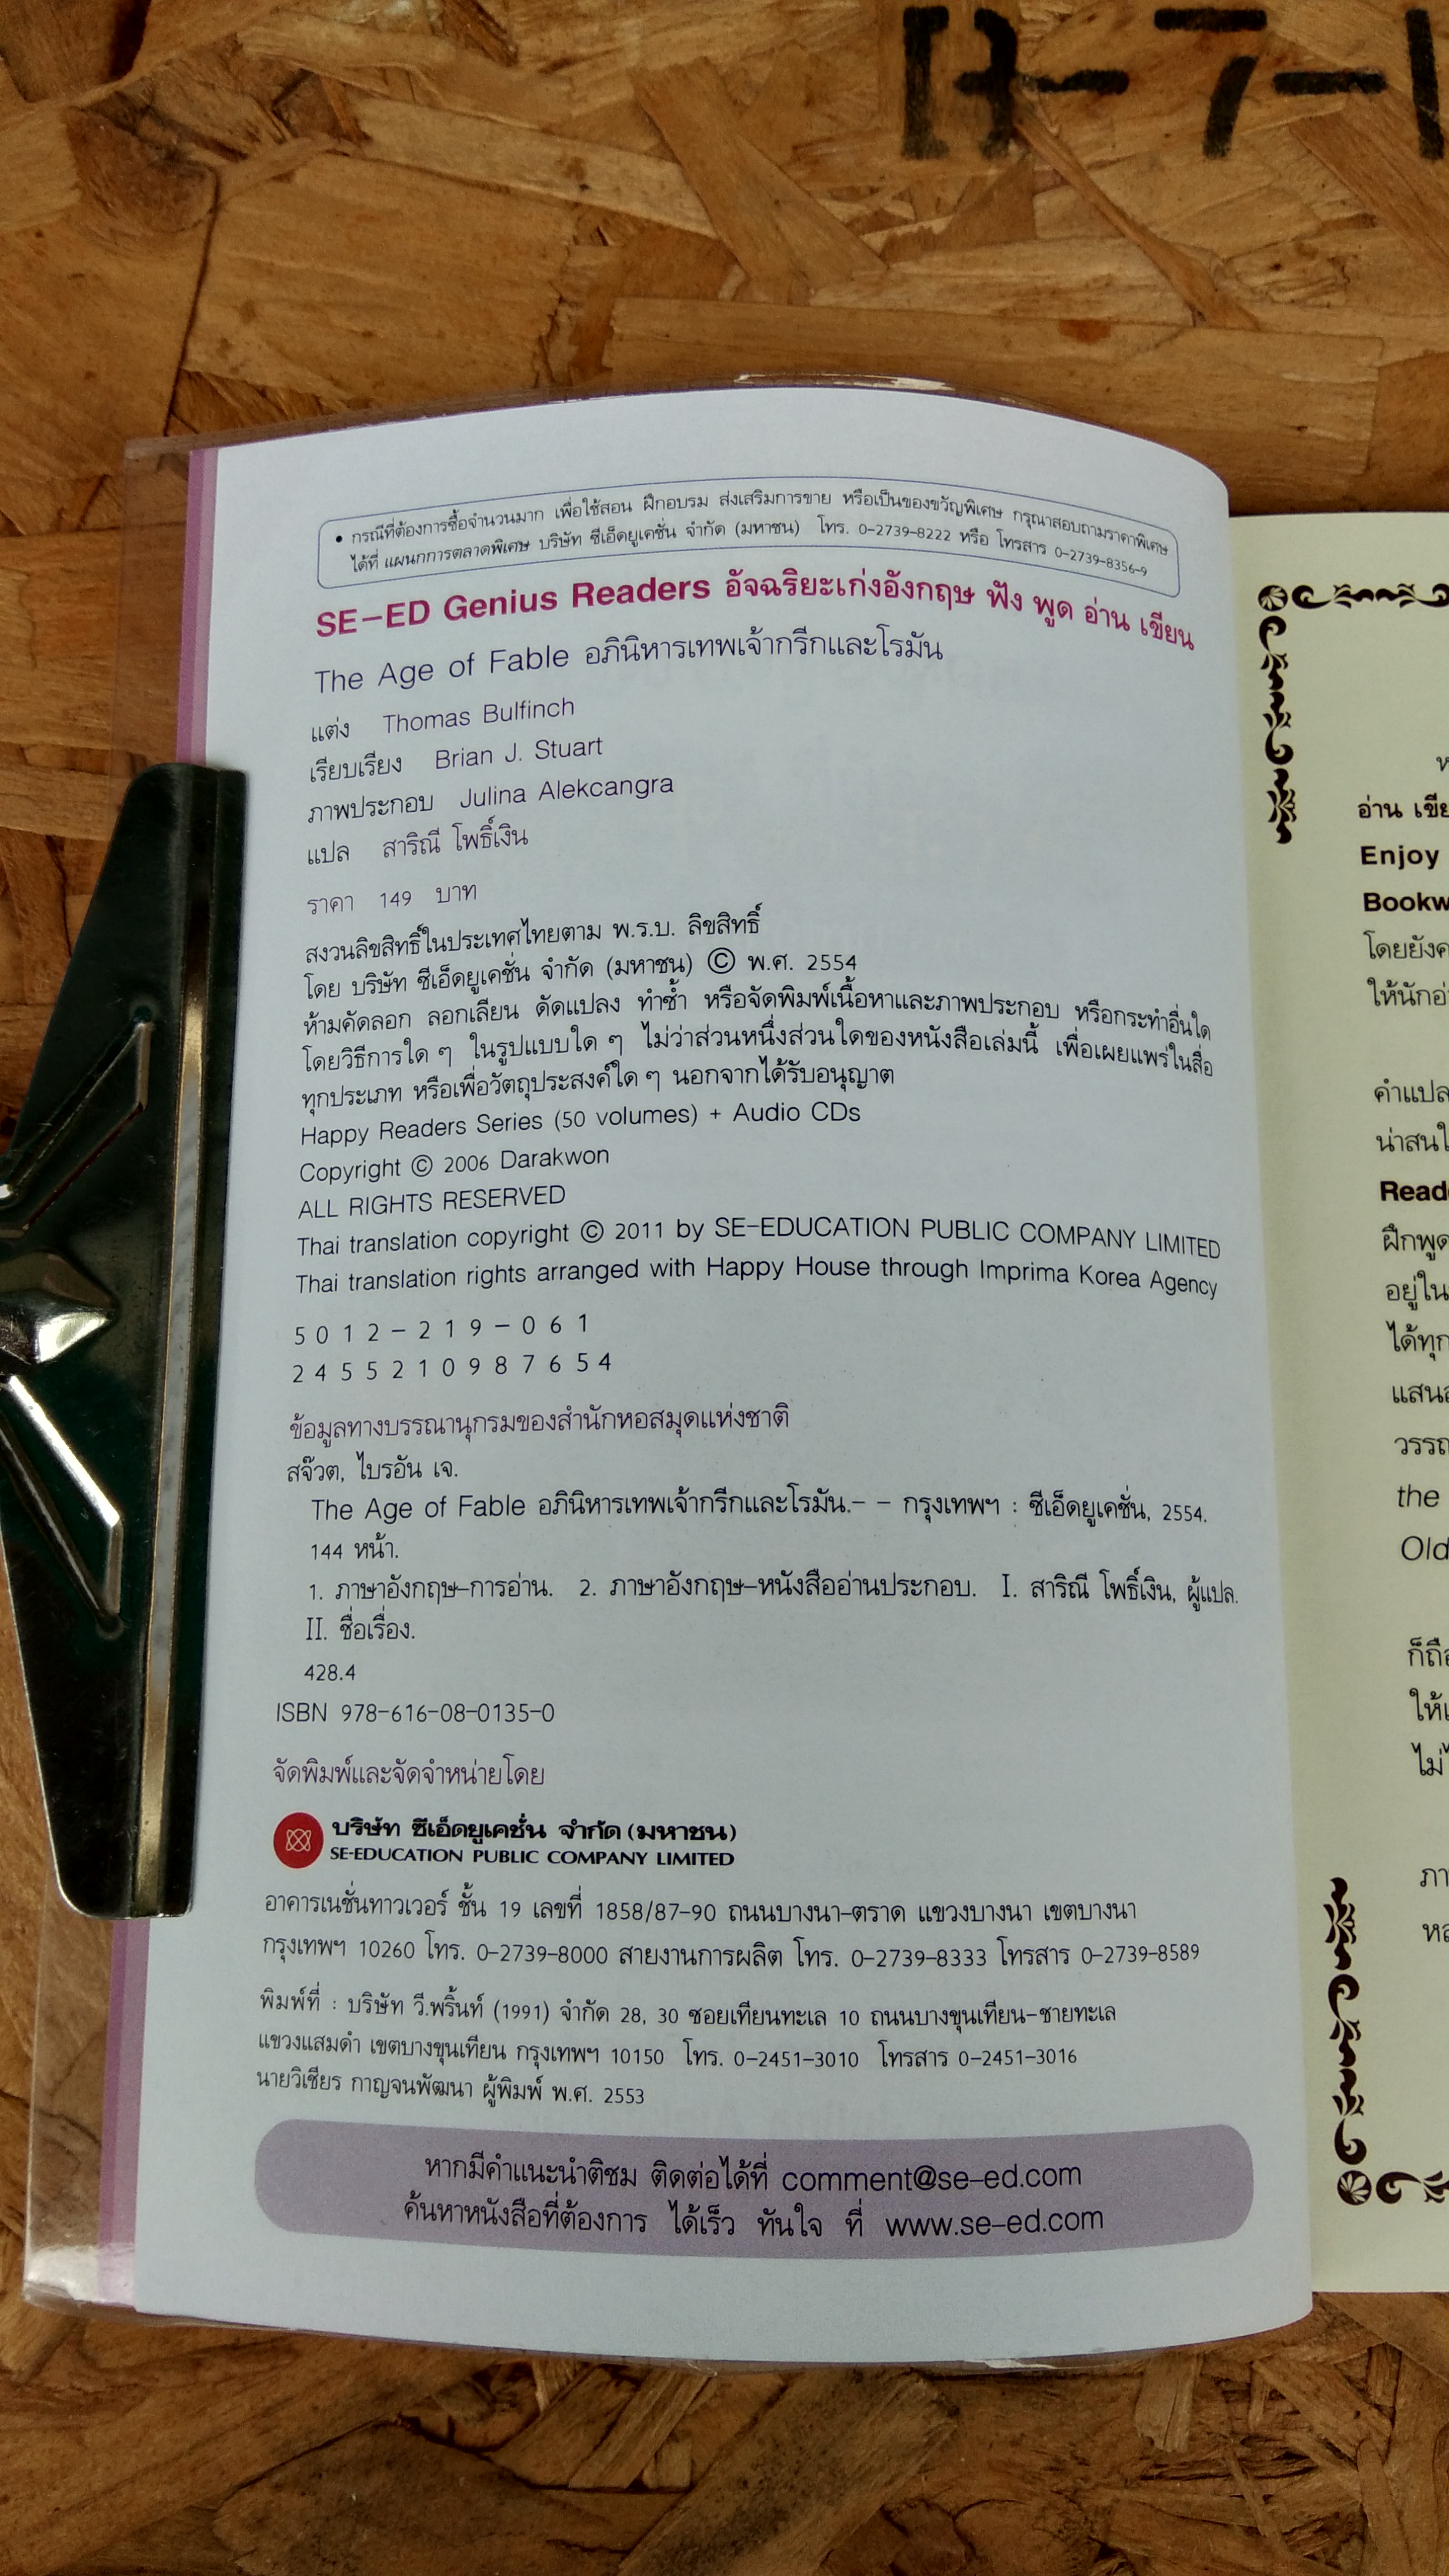 B-7-1
• กรณีที่ต้องการซื้อจำนวนมาก เพื่อใช้สอน ฝึกอบรม ส่งเสริมการขาย หรือเป็นของขวัญพิเศษ กรุณาสอบถามราคาพิเศษ
ได้ที่ แผนกการตลาดพิเศษ บริษัท ซีเอ็ดยูเคชั่น จำกัด (มหาชน) โทร. 0-2739-8222 หรือ โทรสาร 0-2739-8356-9
SE-ED Genius Readers อัจฉริยะเก่งอังกฤษ ฟัง พูด อ่าน เขียน
The Age of Fable อภินิหารเทพเจ้ากรีกและโรมัน
แต่ง Thomas Bulfinch
เรียบเรียง Brian J. Stuart
ภาพประกอบ Julina Alekcangra
แปล สาริณี โพธิ์เงิน
ราคา 149 บาท
สงวนลิขสิทธิ์ในประเทศไทยตาม พ.ร.บ. ลิขสิทธิ์
โดย บริษัท ซีเอ็ดยูเคชั่น จำกัด (มหาชน) © พ.ศ. 2554
ห้ามคัดลอก ลอกเลียน ดัดแปลง ทำซ้ำ หรือจัดพิมพ์เนื้อหาและภาพประกอบ หรือกระทำอื่นใด
โดยวิธีการใด ๆ ในรูปแบบใด ๆ ไม่ว่าส่วนหนึ่งส่วนใดของหนังสือเล่มนี้ เพื่อเผยแพร่ในสื่อ
ทุกประเภท หรือเพื่อวัตถุประสงค์ใด ๆ นอกจากได้รับอนุญาต
Happy Readers Series (50 volumes) + Audio CDs
Copyright © 2006 Darakwon
ALL RIGHTS RESERVED
Thai translation copyright © 2011 by SE-EDUCATION PUBLIC COMPANY LIMITED
Thai translation rights arranged with Happy House through Imprima Korea Agency
5 0 1 2 - 2 1 9 - 0 6 1
2 4 5 5 2 1 0 9 8 7 6 5 4
ข้อมูลทางบรรณานุกรมของสำนักหอสมุดแห่งชาติ
สจ๊วต, ไบรอัน เจ.
The Age of Fable อภินิหารเทพเจ้ากรีกและโรมัน.- - กรุงเทพฯ : ซีเอ็ดยูเคชั่น, 2554.
144 หน้า.
1. ภาษาอังกฤษ-การอ่าน. 2. ภาษาอังกฤษ-หนังสืออ่านประกอบ. I. สาริณี โพธิ์เงิน, ผู้แปล.
II. ชื่อเรื่อง.
428.4
ISBN 978-616-08-0135-0
จัดพิมพ์และจัดจำหน่ายโดย
บริษัท ซีเอ็ดยูเคชั่น จำกัด (มหาชน)
SE-EDUCATION PUBLIC COMPANY LIMITED
อาคารเนชั่นทาวเวอร์ ชั้น 19 เลขที่ 1858/87-90 ถนนบางนา-ตราด แขวงบางนา เขตบางนา
กรุงเทพฯ 10260 โทร. 0-2739-8000 สายงานการผลิต โทร. 0-2739-8333 โทรสาร 0-2739-8589
พิมพ์ที่ : บริษัท วี.พริ้นท์ (1991) จำกัด 28, 30 ซอยเทียนทะเล 10 ถนนบางขุนเทียน-ชายทะเล
แขวงแสมดำ เขตบางขุนเทียน กรุงเทพฯ 10150 โทร. 0-2451-3010 โทรสาร 0-2451-3016
นายวิเชียร กาญจนพัฒนา ผู้พิมพ์ พ.ศ. 2553
หากมีคำแนะนำติชม ติดต่อได้ที่ comment@se-ed.com
ค้นหาหนังสือที่ต้องการ ได้เร็ว ทันใจ ที่ www.se-ed.com
อ่าน
Enjoy
โดยยังค
ให้นักอ่
คำแปล
น่าสนใ
ฝึกพูด
อยู่ใน
ได้ทุก
the
Old